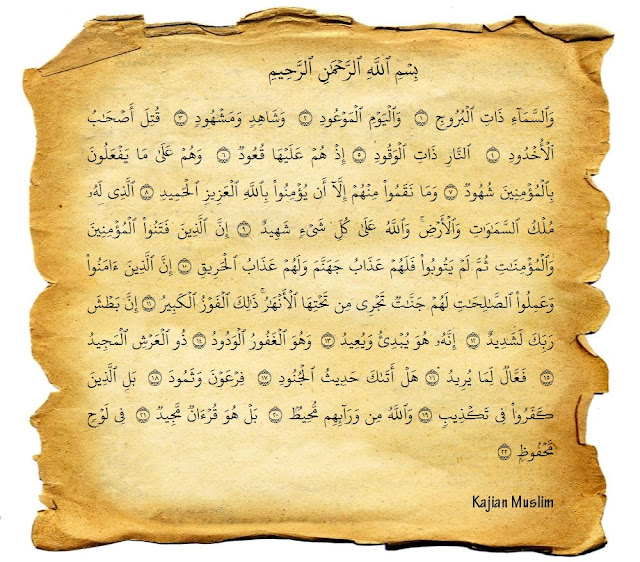 بِسْمِ ٱللَّهِ ٱلرَّحْمَٰنِ ٱلرَّحِيمِ
وَٱلسَّمَآءِ ذَاتِ ٱلْبُرُوجِ ١ وَٱلْيَوْمِ ٱلْمَوْعُودِ ٢ وَشَاهِدٍ وَمَشْهُودٍ ٣ قُتِلَ أَصْحَٰبُ
ٱلْأُخْدُودِ ٤ ٱلنَّارِ ذَاتِ ٱلْوَقُودِ ٥ إِذْ هُمْ عَلَيْهَا قُعُودٌ ٦ وَهُمْ عَلَىٰ مَا يَفْعَلُونَ
بِٱلْمُؤْمِنِينَ شُهُودٌ ٧ وَمَا نَقَمُوا۟ مِنْهُمْ إِلَّآ أَن يُؤْمِنُوا۟ بِٱللَّهِ ٱلْعَزِيزِ ٱلْحَمِيدِ ٨ ٱلَّذِى لَهُۥ
مُلْكُ ٱلسَّمَٰوَٰتِ وَٱلْأَرْضِ ۚ وَٱللَّهُ عَلَىٰ كُلِّ شَىْءٍ شَهِيدٌ ٩ إِنَّ ٱلَّذِينَ فَتَنُوا۟ ٱلْمُؤْمِنِينَ
وَٱلْمُؤْمِنَٰتِ ثُمَّ لَمْ يَتُوبُوا۟ فَلَهُمْ عَذَابُ جَهَنَّمَ وَلَهُمْ عَذَابُ ٱلْحَرِيقِ ١٠ إِنَّ ٱلَّذِينَ ءَامَنُوا۟
وَعَمِلُوا۟ ٱلصَّٰلِحَٰتِ لَهُمْ جَنَّٰتٌ تَجْرِى مِن تَحْتِهَا ٱلْأَنْهَٰرُ ۚ ذَٰلِكَ ٱلْفَوْزُ ٱلْكَبِيرُ ١١ إِنَّ بَطْشَ
رَبِّكَ لَشَدِيدٌ ١٢ إِنَّهُۥ هُوَ يُبْدِئُ وَيُعِيدُ ١٣ وَهُوَ ٱلْغَفُورُ ٱلْوَدُودُ ١٤ ذُو ٱلْعَرْشِ ٱلْمَجِيدُ
١٥ فَعَّالٌ لِّمَا يُرِيدُ ١٦ هَلْ أَتَىٰكَ حَدِيثُ ٱلْجُنُودِ ١٧ فِرْعَوْنَ وَثَمُودَ ١٨ بَلِ ٱلَّذِينَ
كَفَرُوا۟ فِى تَكْذِيبٍ ١٩ وَٱللَّهُ مِن وَرَآئِهِم مُّحِيطٌۢ ٢٠ بَلْ هُوَ قُرْءَانٌ مَّجِيدٌ ٢١ فِى لَوْحٍ
مَّحْفُوظٍۭ ٢٢
Kajian Muslim